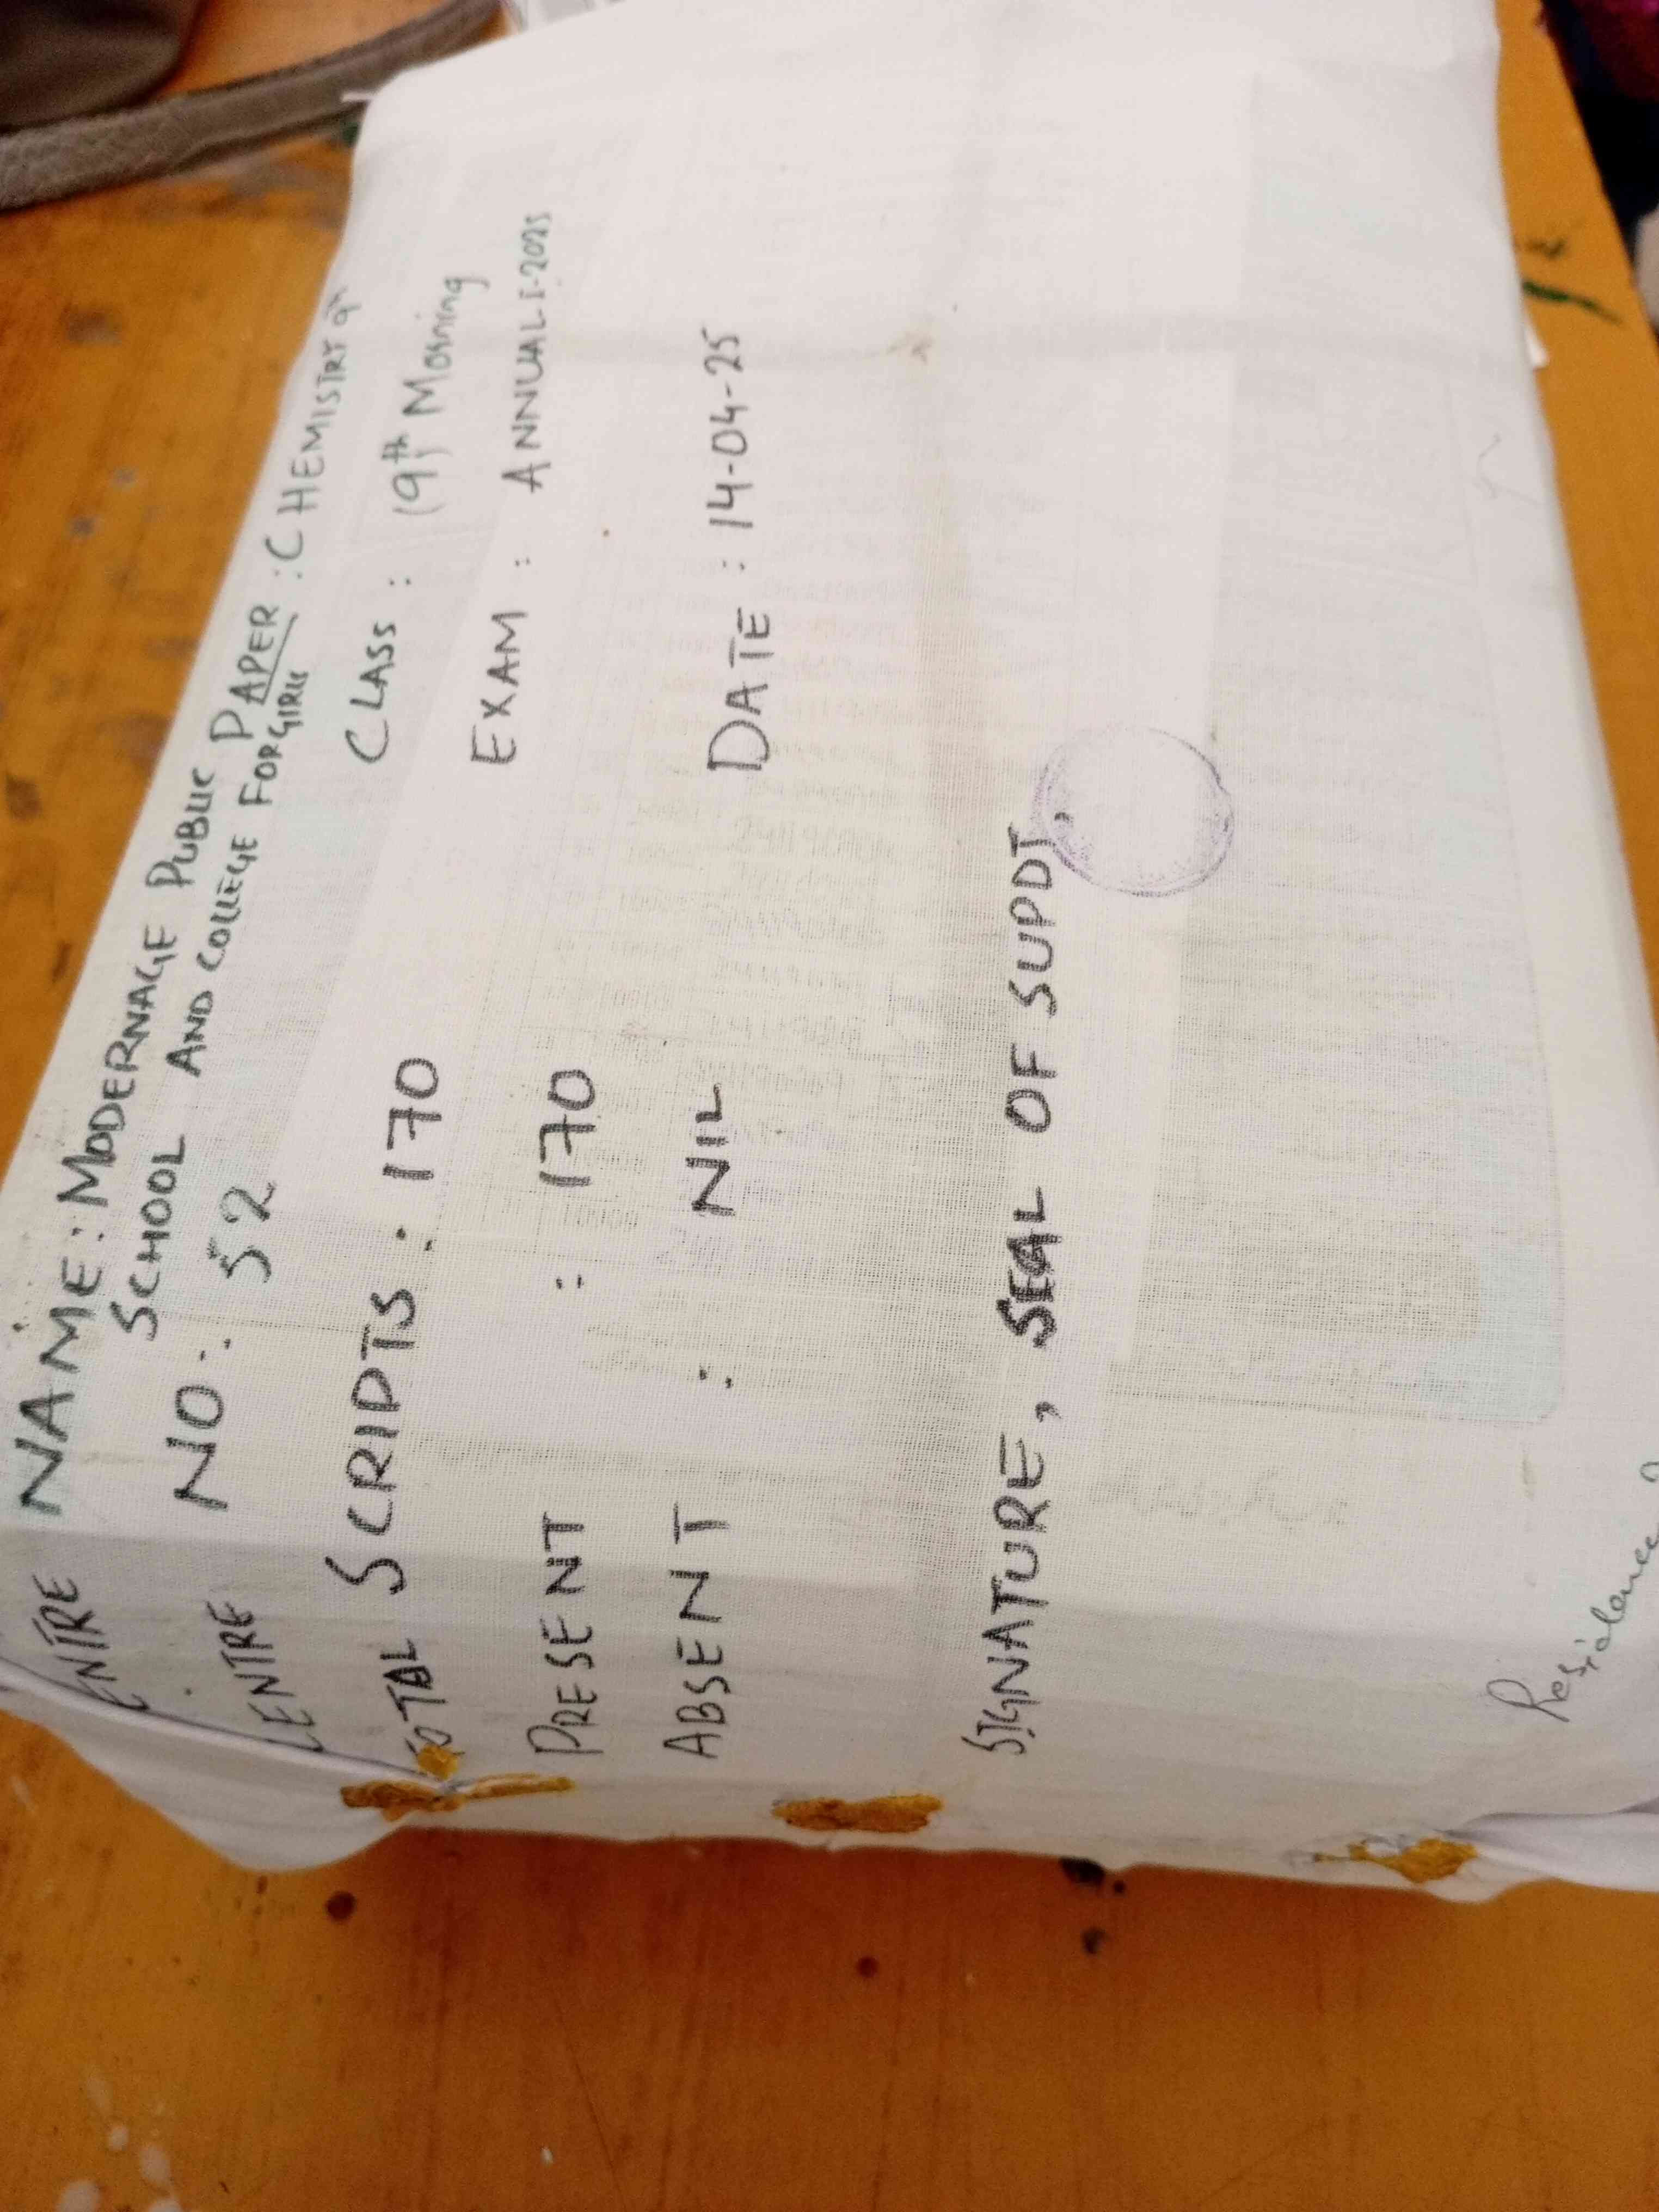 ENTRE NAME: MODERNAGE PUBLIC
SCHOOL AND COLLEGE FOR GIRLS
CENTRE NO: 52
PAPER: CHEMISTRY 9th
OTAL SCRIPTS: 170
CLASS: 9th Morning
PRESENT : 170
EXAM: ANNUAL-I-2025
ABSENT : NIL
DATE: 14-04-25
SIGNATURE, SEAL OF SUPDT.
Residence